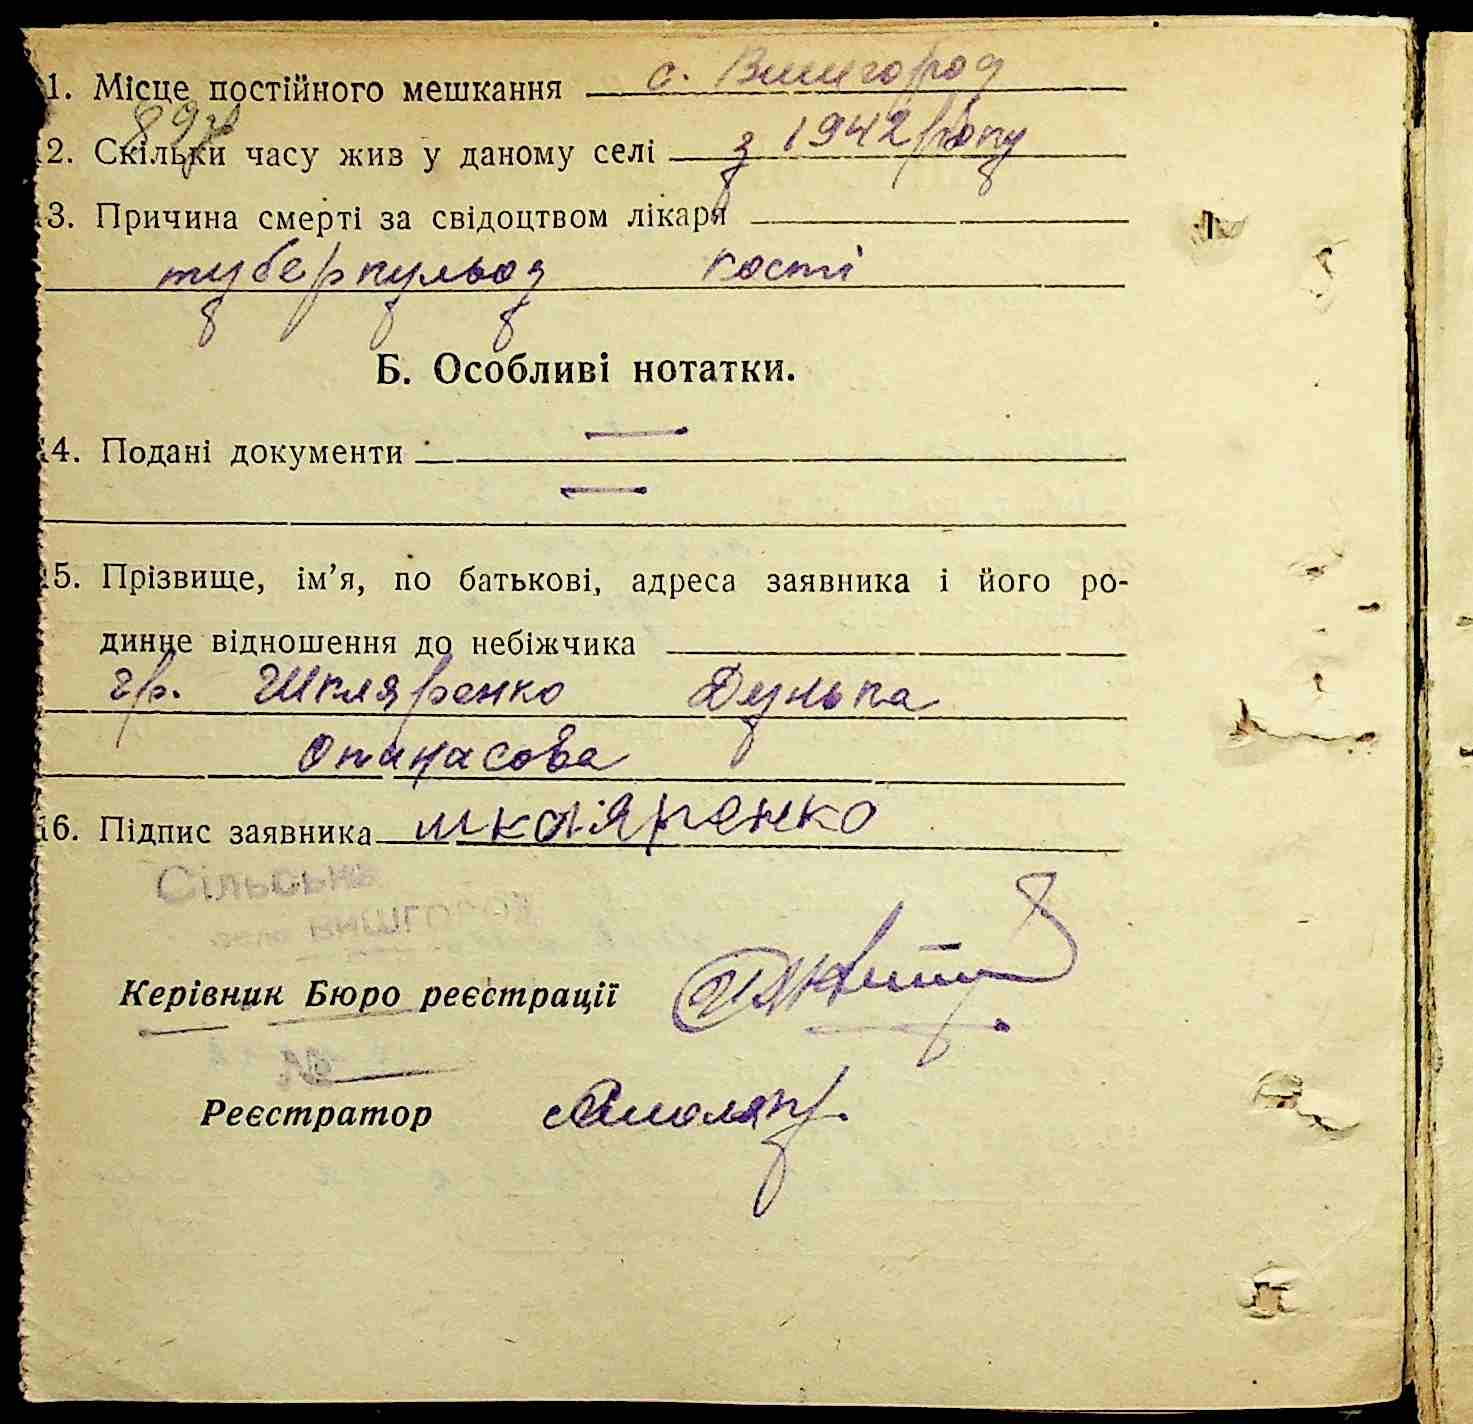 11. Місце постійного мешкання с. Вишгород
89
12. Скільки часу жив у даному селі з 1942 року
13. Причина смерті за свідоцтвом лікаря
туберкульоз кості
Б. Особливі нотатки.
14. Подані документи —
—
15. Прізвище, ім’я, по батькові, адреса заявника і його ро-
динне відношення до небіжчика
гр. Шкляренко Дунька
Опанасова
16. Підпис заявника шкляренко
Сільська
село ВИШГОРОД
Керівник Бюро реєстрації
Реєстратор